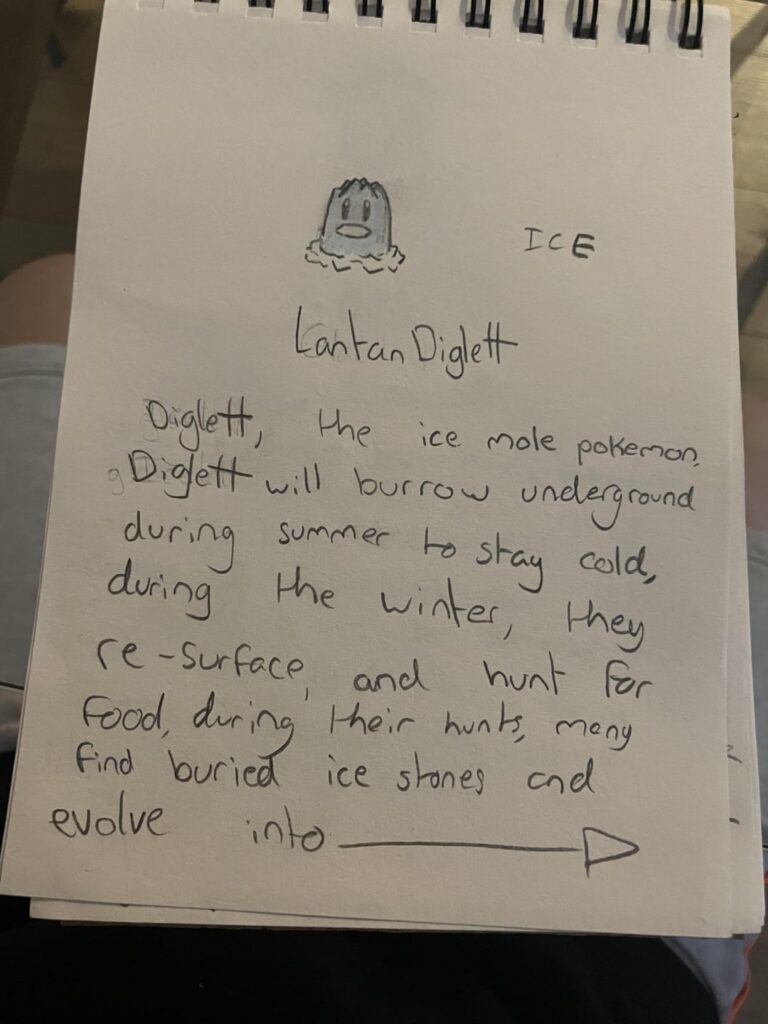 ICE
Lantan Diglett
Diglett, the ice mole pokemon,
Diglett will burrow underground
during summer to stay cold,
during the winter, they
re-surface, and hunt for
food, during their hunts, many
find buried ice stones and
evolve into